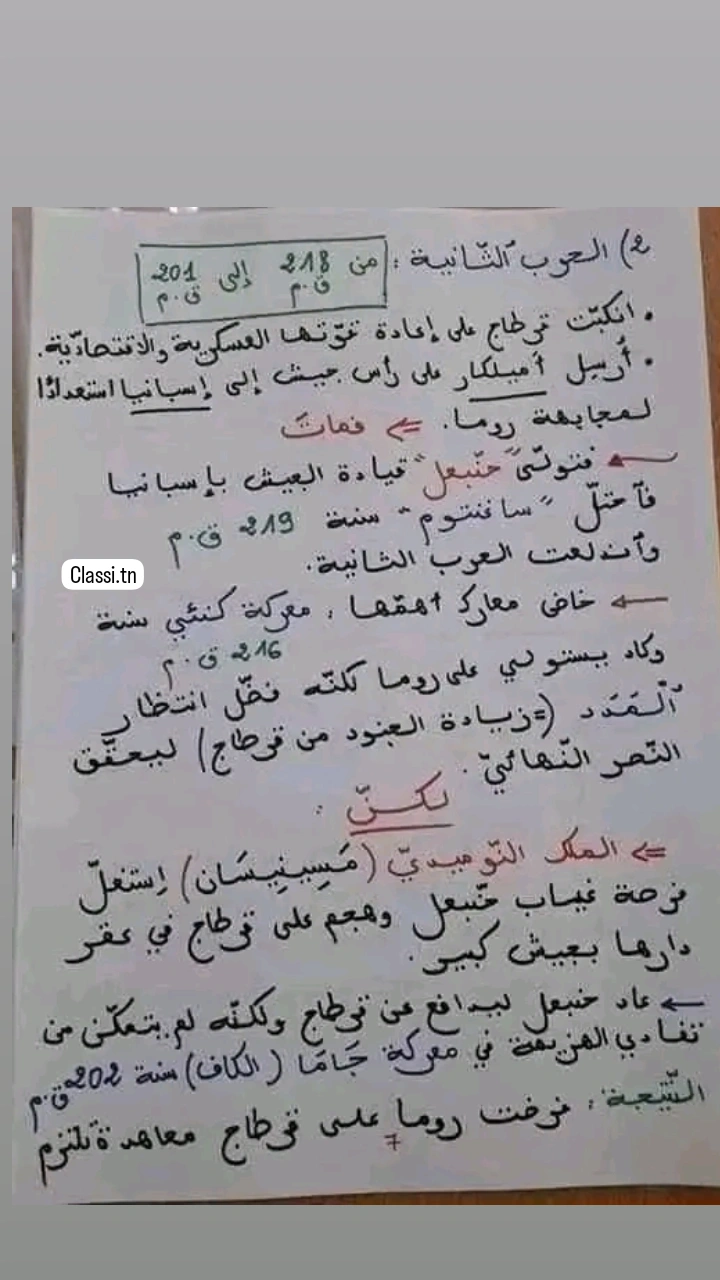 2) الحرب الثّانية : من 218 ق.م إلى 201 ق.م
• انكبّت قرطاج على إعادة قوّتها العسكرية والاقتصاديّة.
• أُرسِل أميلكار على رأس جيش إلى إسبانيا استعدادًا
لمجابهة روما. ⇐ فمات
← فتولّى "حنّبعل" قيادة الجيش بإسبانيا
فٱحتلّ "ساغنتوم" سنة 219 ق.م
وٱندلعت الحرب الثانية.
Classi.tn
← خاض معارك أهمّها : معركة كنثي سنة
216 ق.م
وكاد يستولي على روما لكنّه فضّل انتظار
ٱلْمَدَد (= زيادة الجنود من قرطاج) ليحقّق
النّصر النّهائيّ.
لكنّ :
⇐ الملك النّوميديّ (مَسِينِيسَان) إستغلّ
فرصة غياب حنّبعل وهجم على قرطاج في عقر
دارها بجيش كبير.
← عاد حنبعل ليدافع عن قرطاج ولكنّه لم يتمكّن من
تفادي الهزيمة في معركة جَامَا (الكاف) سنة 202 ق.م
النّتيجة : فرضت روما على قرطاج معاهدة تلتزم
7